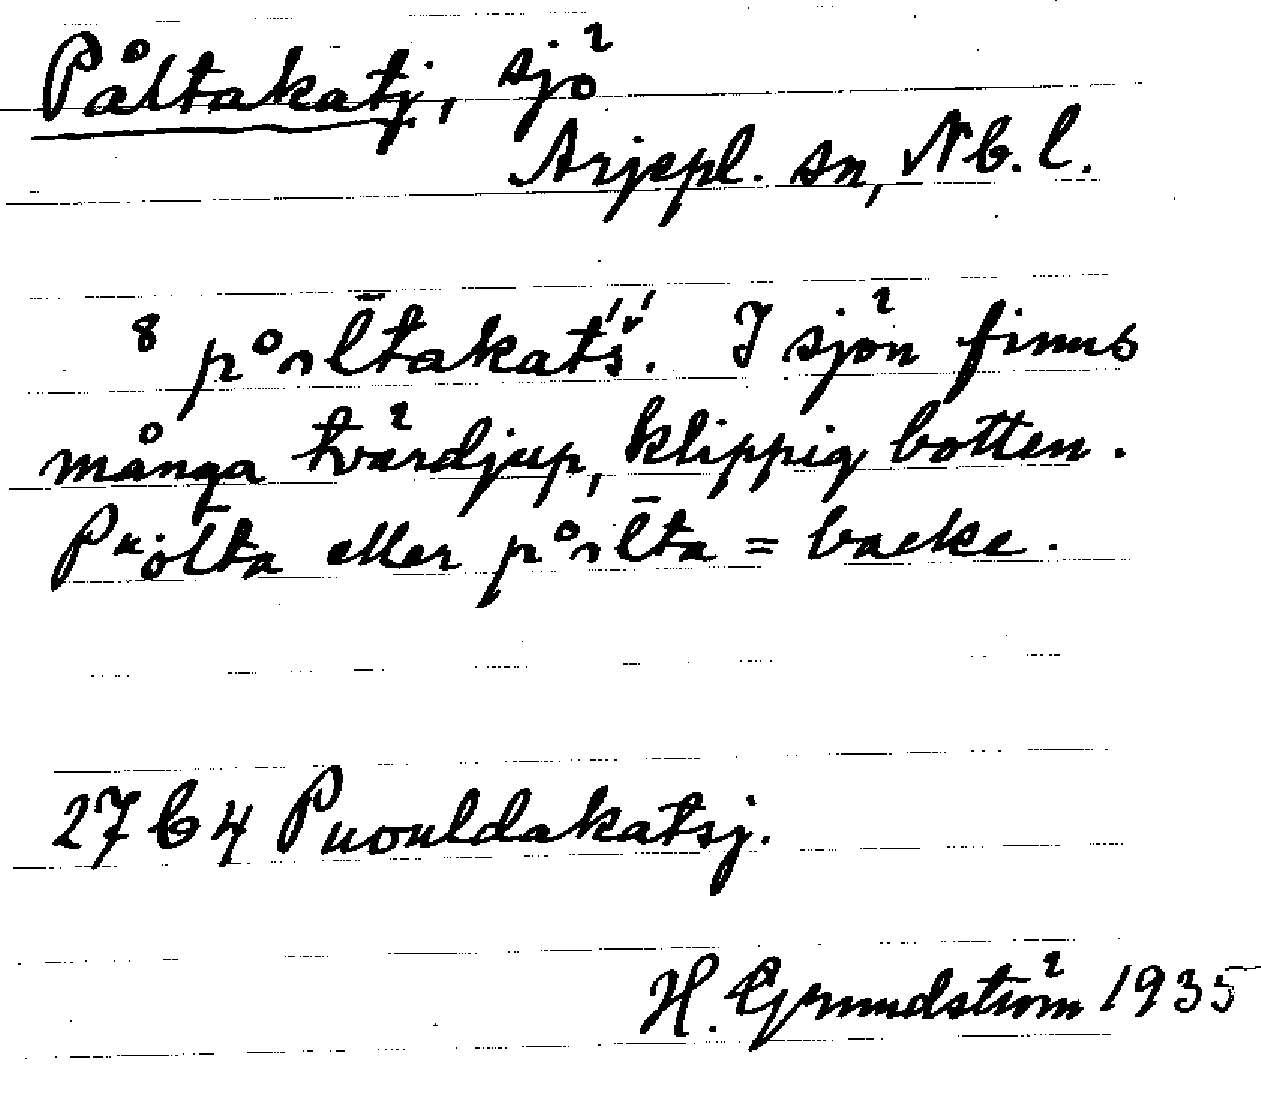 Påltakatj, sjö
Arjepl. sn, Nb. l.
8 påɷl̄takat́ś́. I sjön finns
många tvärdjup, klippig botten.
Puöl̄ta eller påɷl̄ta = backe.
27 C 4 Puouldakatsj.
H. Grundström 1935